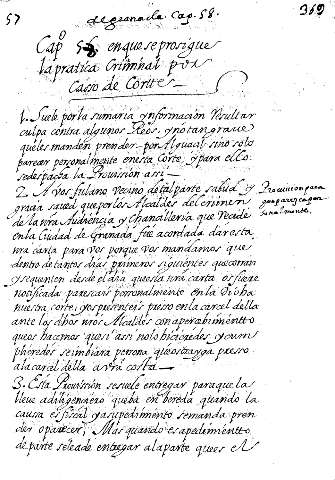 57
de granada Cap. 58.
369
Capº 58 en que se prosigue
la pratica Criminal por
Casso de Corte
1. Suele por la sumaria ynformacion Resultar
culpa contra algunos Reos, y no tan grave
que les manden prender por Alguacil sino solo
parecer personalmente en esta Corte, y para ello
se despacha la Provission assi
2. A vos fulano vecino de tal parte salud y
gracia saved que por los Alcaldes del crimen
de la nra Audiencia y Chancilleria que Recide
en la Ciudad de Granada fue acordada dar esta
nra carta para vos porque vos mandamos que
dentro de tantos dias primeros siguientes que corran
y se quenten desde el dia que esta nra carta os fuere
notificada parescais personalmente en la Dicha
nuestra corte, y os presenteis preso en la carcel della
ante los dhos nros Alcaldes con apercebimientto
que os hacemos que si assi no lo hicieredes y cum
plieredes se imbiara persona que os trayga presso
a la carcel della a vra costa
Provicion para
que parezca per
sonalmente.
3. Esta Provission se suele entregar para que la
lleve a diligenciero que va en bereda quando la
causa es fiscal y a su pedimiento se manda pren
der o parecer; Mas quando es a pedimientto
de parte se le ade entregar a la parte que es el